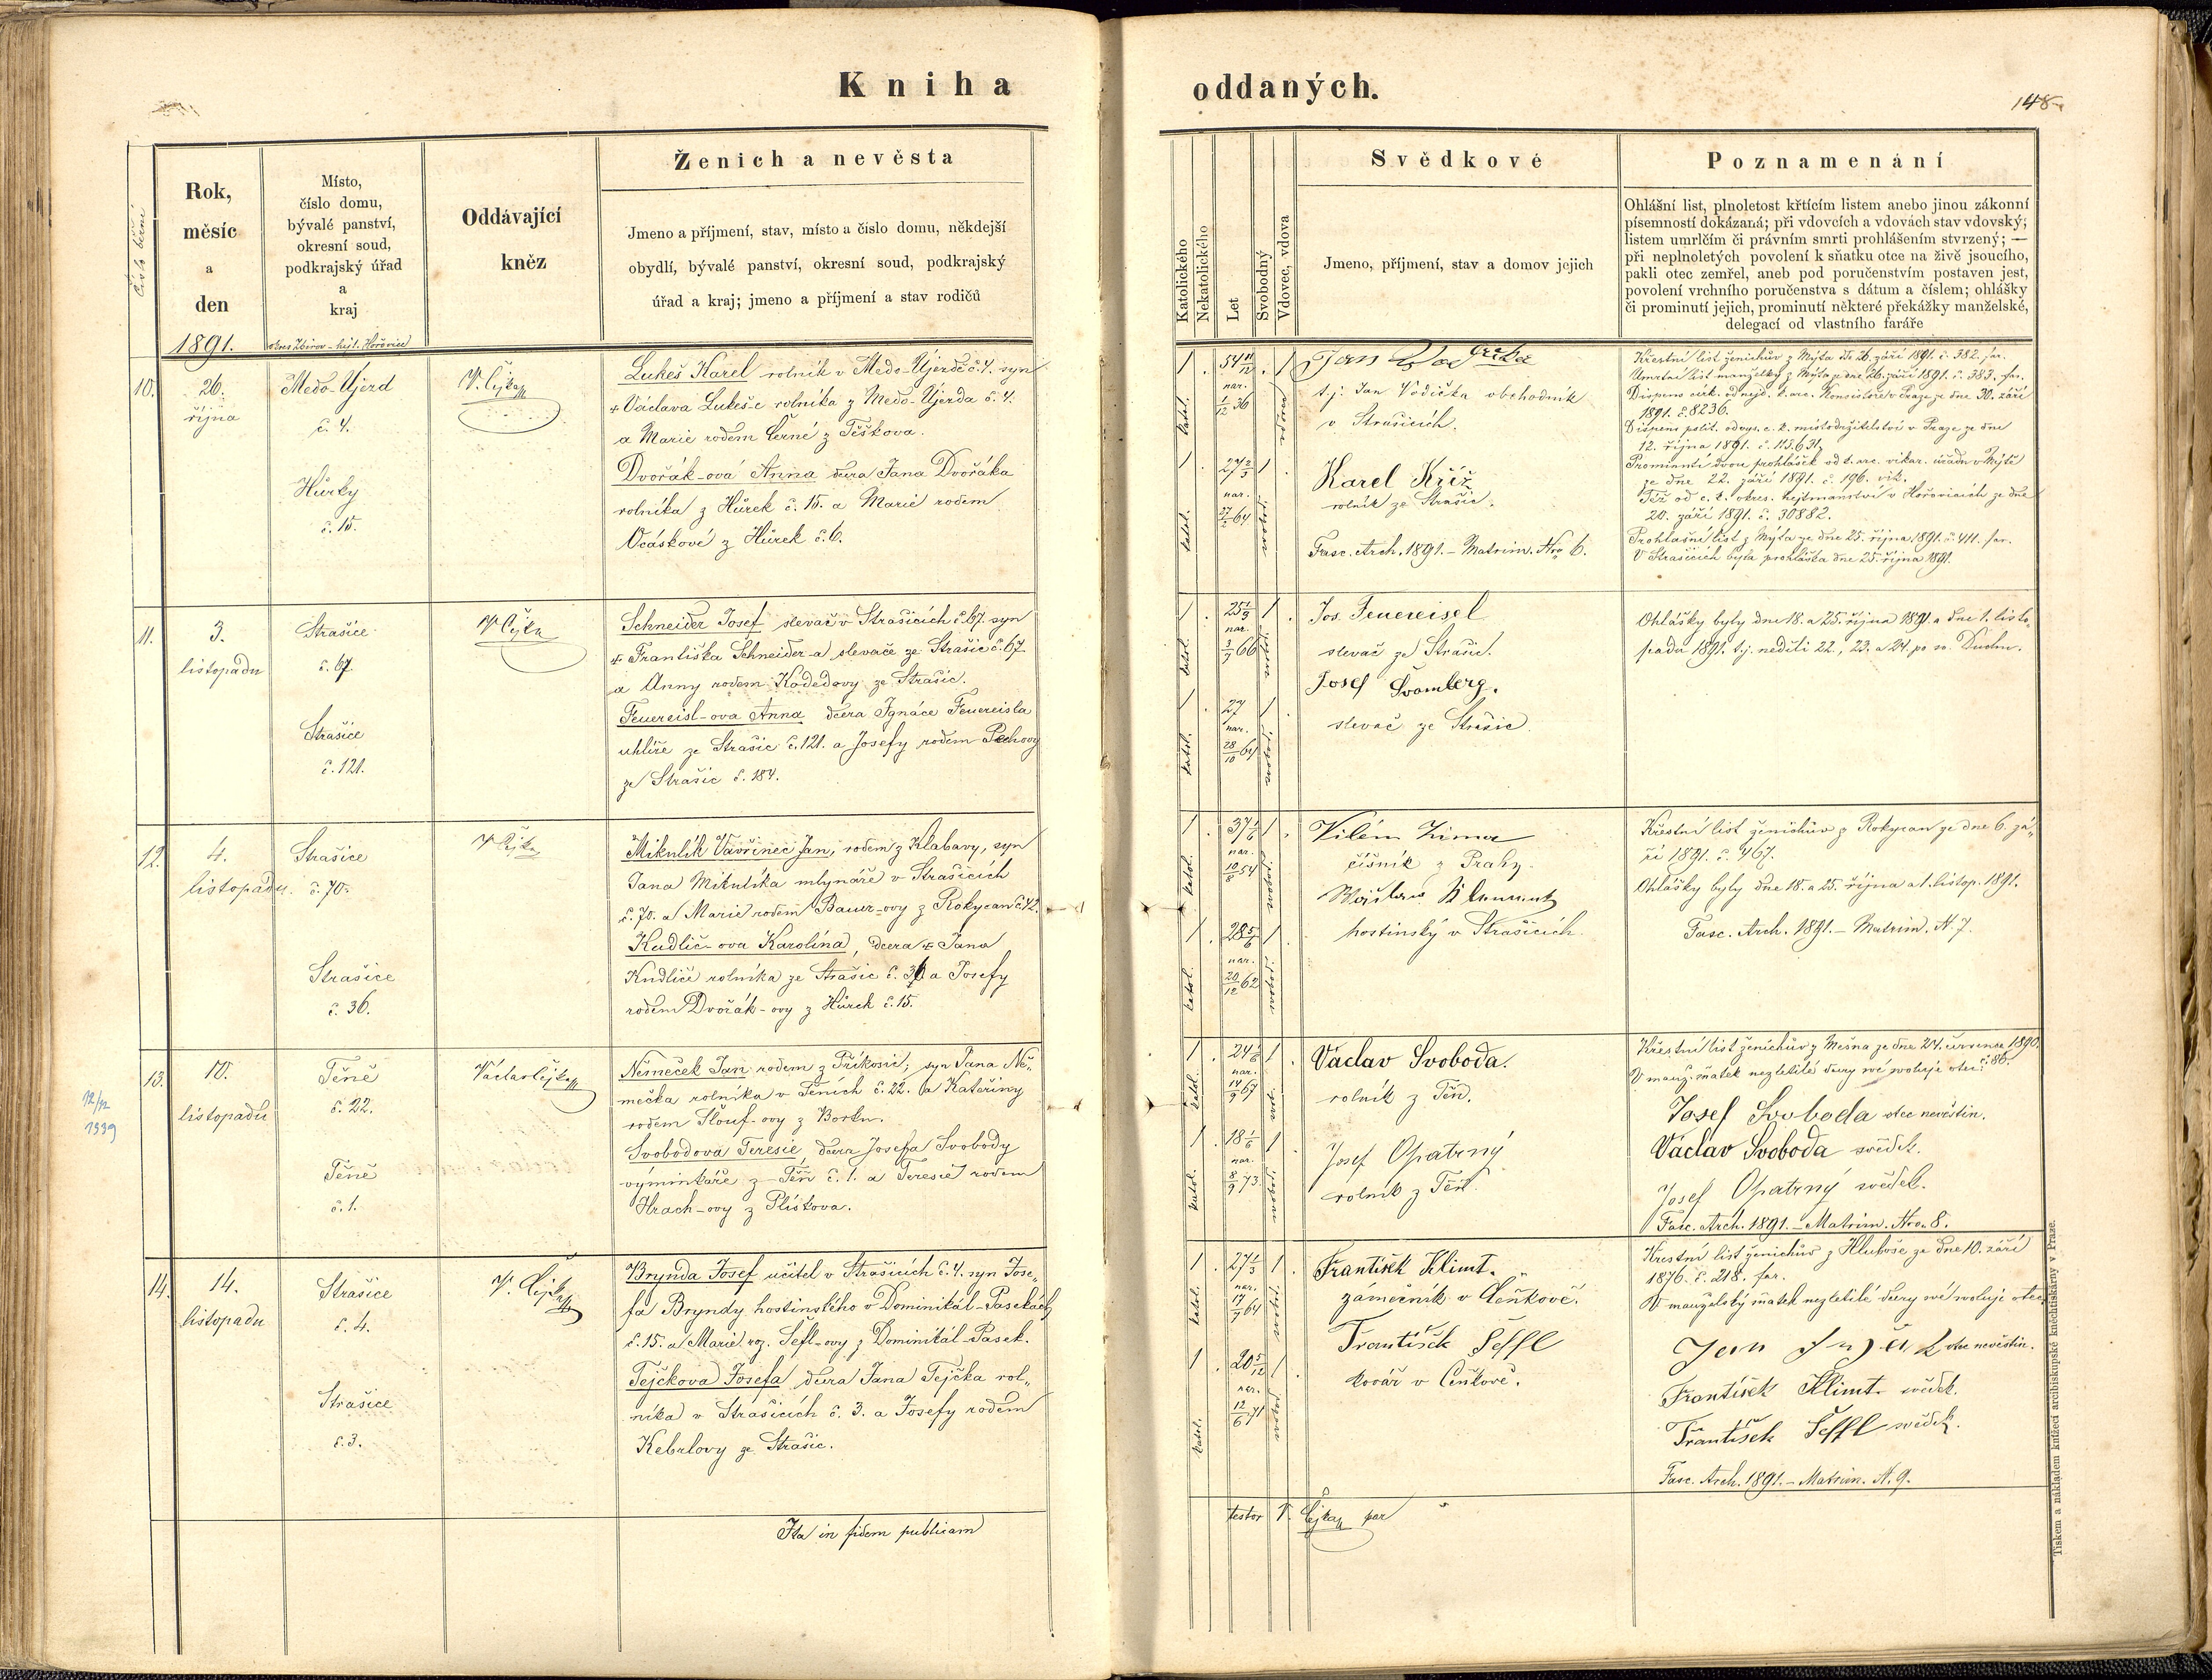 Kniha oddaných.
148
Číslo běžné
Rok,
měsíc
a
den
1891.
Místo,
číslo domu,
bývalé panství,
okresní soud,
podkrajský úřad
a
kraj
okres Zbirov - hejt. Hořovice
Oddávající
kněz
Ženich a nevěsta
Jmeno a příjmení, stav, místo a čislo domu, někdejší
obydlí, bývalé panství, okresní soud, podkrajský
úřad a kraj; jmeno a příjmení a stav rodičů
Katolického
Nekatolického
Let
Svobodný
Vdovec, vdova
Svědkové
Jmeno, příjmení, stav a domov jejich
Poznamenání
Ohlášní list, plnoletost křtícím listem anebo jinou zákonní
písemností dokázaná; při vdovcích a vdovách stav vdovský;
listem umrlčím či právním smrti prohlášením stvrzený; —
při neplnoletých povolení k sňatku otce na živě jsoucího,
pakli otec zemřel, aneb pod poručenstvím postaven jest,
povolení vrchního poručenstva s dátum a číslem; ohlášky
či prominutí jejich, prominutí některé překážky manželské,
delegací od vlastního faráře
10.
26.
října
Medo-Újezd
č. 4.
Hůrky
č. 15.
V. Čejka
Lukeš Karel rolník v Medo-Újezdě č. 4. syn
+ Václava Lukeš-e rolníka z Medo-Újezda č. 4.
a Marie rodem Černé z Těškova.
Dvořák-ová Anna dcera Jana Dvořáka
rolníka z Hůrek č. 15. a Marie rodem
Ocáskové z Hůrek č. 6.
1 54 11/12 1
nar.
1/12 36
katol.
1 27 2/3 1
nar.
27/2 64
katol.
Jan Vodička
t. j. Jan Vodička obchodník
v Strašicích.
Karel Kříž
rolník ze Strašic.
Fasc. Arch. 1891. - Matrim. Nro 6.
Křestní list ženichův z Mýta de 26. září 1891. č. 382. far.
Úmrtní list manželky z Mýta z dne 26. září 1891. č. 383. far.
Dispens církv. od nejd. k. arc. Konsistoře v Praze ze dne 30. září
1891. č. 8236.
Dispens polit. od vys. c. k. místodržitelství v Praze ze dne
12. října 1891. č. 115.631.
Prominutí dvou prohlášek od k. arc. vikar. úřadu v Mýtě
ze dne 22. září 1891. č. 196. vik.
Též od c. k. okres. hejtmanství v Hořovicích ze dne
20. září 1891. č. 30882.
Prohlašní list z Mýta ze dne 25. října 1891. č. 411. far.
V Strašicích byla prohláška dne 25. října 1891.
11.
3.
listopadu
Strašice
č. 67.
Strašice
č. 121.
V. Čejka
Schneider Josef slevač v Strašicích č. 67. syn
+ Františka Schneider-a slevače ze Strašic č. 67
a Anny rodem Kodedovy ze Strašic.
Feuereisl-ova Anna dcera Ignáce Feuereisla
uhlíře ze Strašic č. 121. a Josefy rodem Pechovy
ze Strašic č. 184.
1 25 1/3 1
nar.
3/7 66
katol.
1 27 1
nar.
28/10 64
katol.
Jos. Feuereisel
slevač ze Strašic.
Josef Švomberg.
slevač ze Strašic.
Ohlášky byly dne 18. a 25. října 1891 a dne 1. listo-
padu 1891. t. j. neděli 22., 23. a 24. po sv. Duchu.
12.
4.
listopadu.
Strašice
č. 70.
Strašice
č. 36.
V. Čejka
Mikulík Vavřinec Jan, rodem z Klabavy, syn
Jana Mikulíka mlynáře v Strašicích
č. 70. a Marie rodem Bauer-ovy z Rokycan č. 42.
Kudlič-ova Karolína, dcera + Jana
Kudliče rolníka ze Strašic č. 36 a Josefy
rodem Dvořák-ovy z Hůrek č. 15.
1 37 1/6 1
nar.
10/8 54
katol.
1 28 5/6 1
nar.
20/12 62
katol.
Vilém Zima
číšník z Prahy.
Klement
hostinský v Strašicích.
Křestní list ženichův z Rokycan ze dne 6. zá-
ří 1891. č. 467.
Ohlášky byly dne 18. a 25. října a 1. listop. 1891.
Fasc. Arch. 1891. - Matrim. N. 7.
12/12
1939
13.
10.
listopadu
Těně
č. 22.
Těně
č. 1.
Václav Čejka
Němeček Jan rodem z Příkosic, syn Jana Ně-
mečka rolníka v Těních č. 22. a Kateřiny
rodem Šlouf-ovy z Borku.
Svobodova Teresie dcera Josefa Svobody
výminkáře z Těň č. 1. a Teresie rodem
Hrach-ovy z Plískova.
1 24 1/6 1
nar.
14/9 67
katol.
1 18 1/6 1
nar.
8/9 73
katol.
Václav Svoboda.
rolník z Těň.
Josef Opatrný
rolník z Těň.
Křestní list ženichův z Mešna ze dne 24. července 1890.
č. 86.
V manž. sňatek nezletilé dcery své svoluje otec:
Josef Svoboda otec nevěstin.
Václav Svoboda svědek.
Josef Opatrný svědek.
Fasc. Arch. 1891. - Matrim. Nro. 8.
14.
14.
listopadu
Strašice
č. 4.
Strašice
č. 3.
V. Čejka
Brynda Josef učitel v Strašicích č. 4. syn Jose-
fa Bryndy hostinského v Dominikál-Pasekách
č. 15. a Marie roz. Šefl-ovy z Dominikál-Pasek.
Tejčkova Josefa dcera Jana Tejčka rol-
níka v Strašicích č. 3. a Josefy rodem
Kebrlovy ze Strašic.
1 27 1/3 1
nar.
17/7 64
katol.
1 20 5/12 1
nar.
12/6 71
katol.
František Klimt.
zámečník v Čeňkově.
František Šeffl
kovář v Čeňkově.
Křestní list ženichův z Hluboše ze dne 10. září
1876. č. 218. far.
V manželský sňatek nezletilé dcery své svoluje otec
Jan otec nevěstin.
František Klimt svědek.
František Šeffl svědek.
Fasc. Arch. 1891. - Matrim. N. 9.
Ita in fidem publicam
testor V. Čejka far
Tiskem a nákladem knížecí arcibiskupské knihtiskárny v Praze.